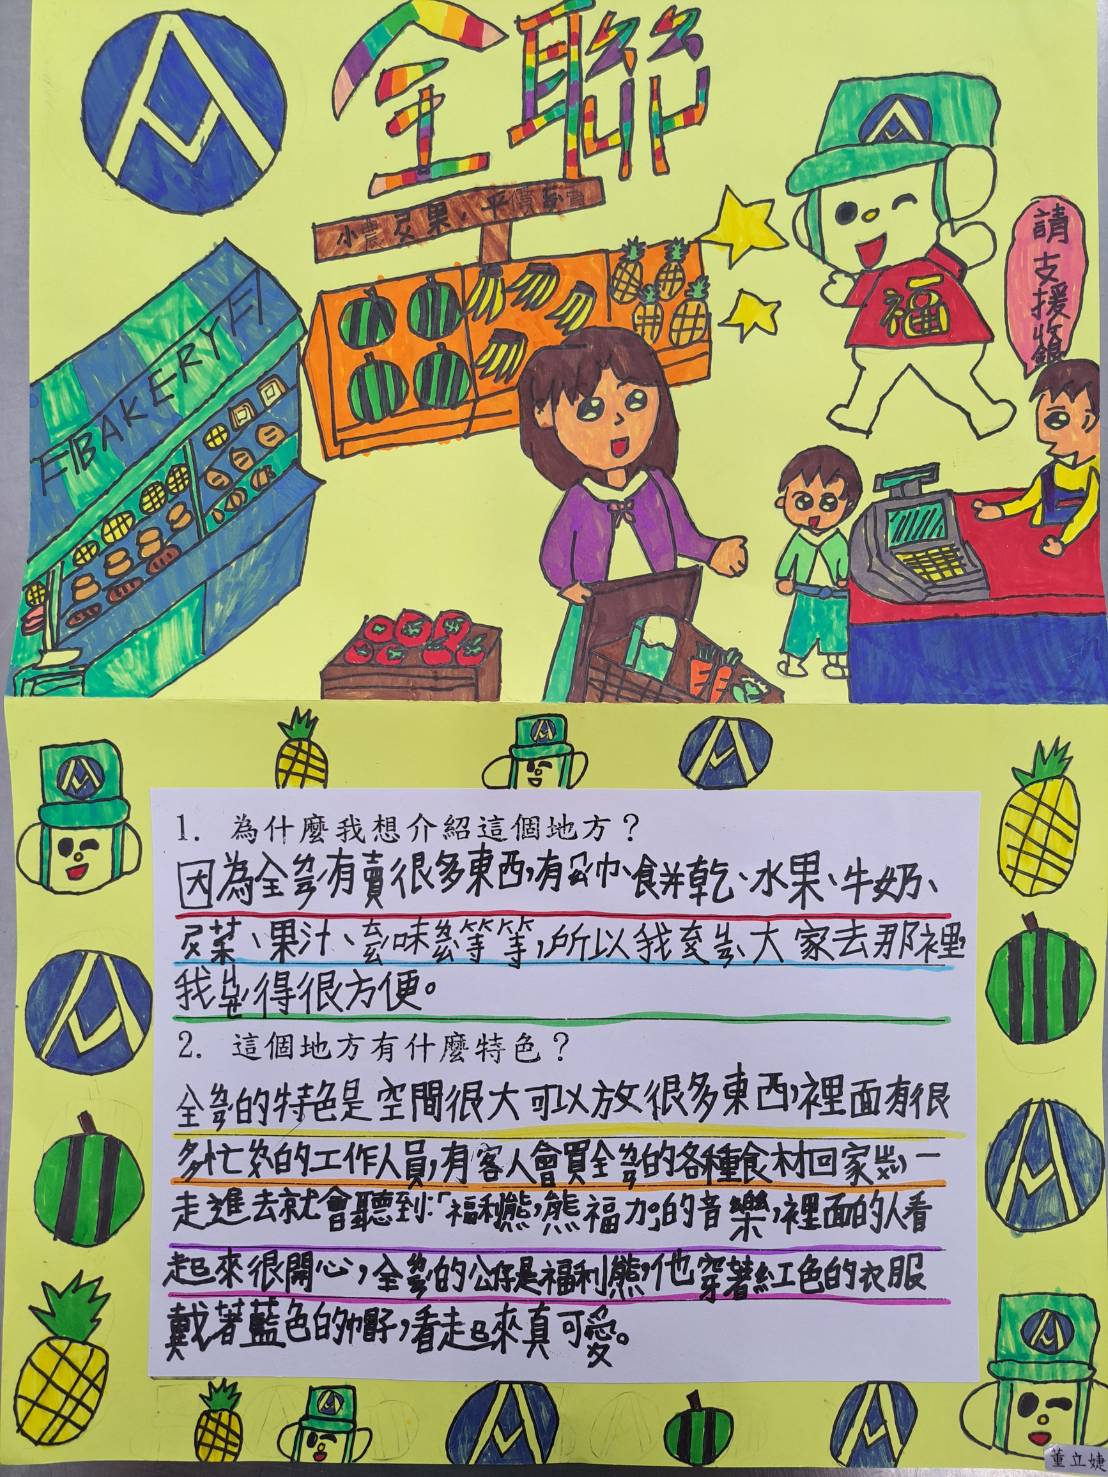 全聯
小農 果，平價
請支援收銀
BAKERY
福
1. 為什麼我想介紹這個地方？
因為全 有賣很多東西，有 餅乾、水果、牛奶、
果汁、 味 等等等，所以我 大家去那裡
我 得很方便。
2. 這個地方有什麼特色？
全 的特色是空間很大可以放很多東西，裡面有很
多忙 的工作人員，有客人會買全 的各種食材回家 一
走進去就會聽到：「福利熊，熊福力」的音樂，裡面的人看
起來很開心，全 的公仔是福利熊，他穿著紅色的衣服
戴著藍色的帽子，看走起來真可愛。
董立婕